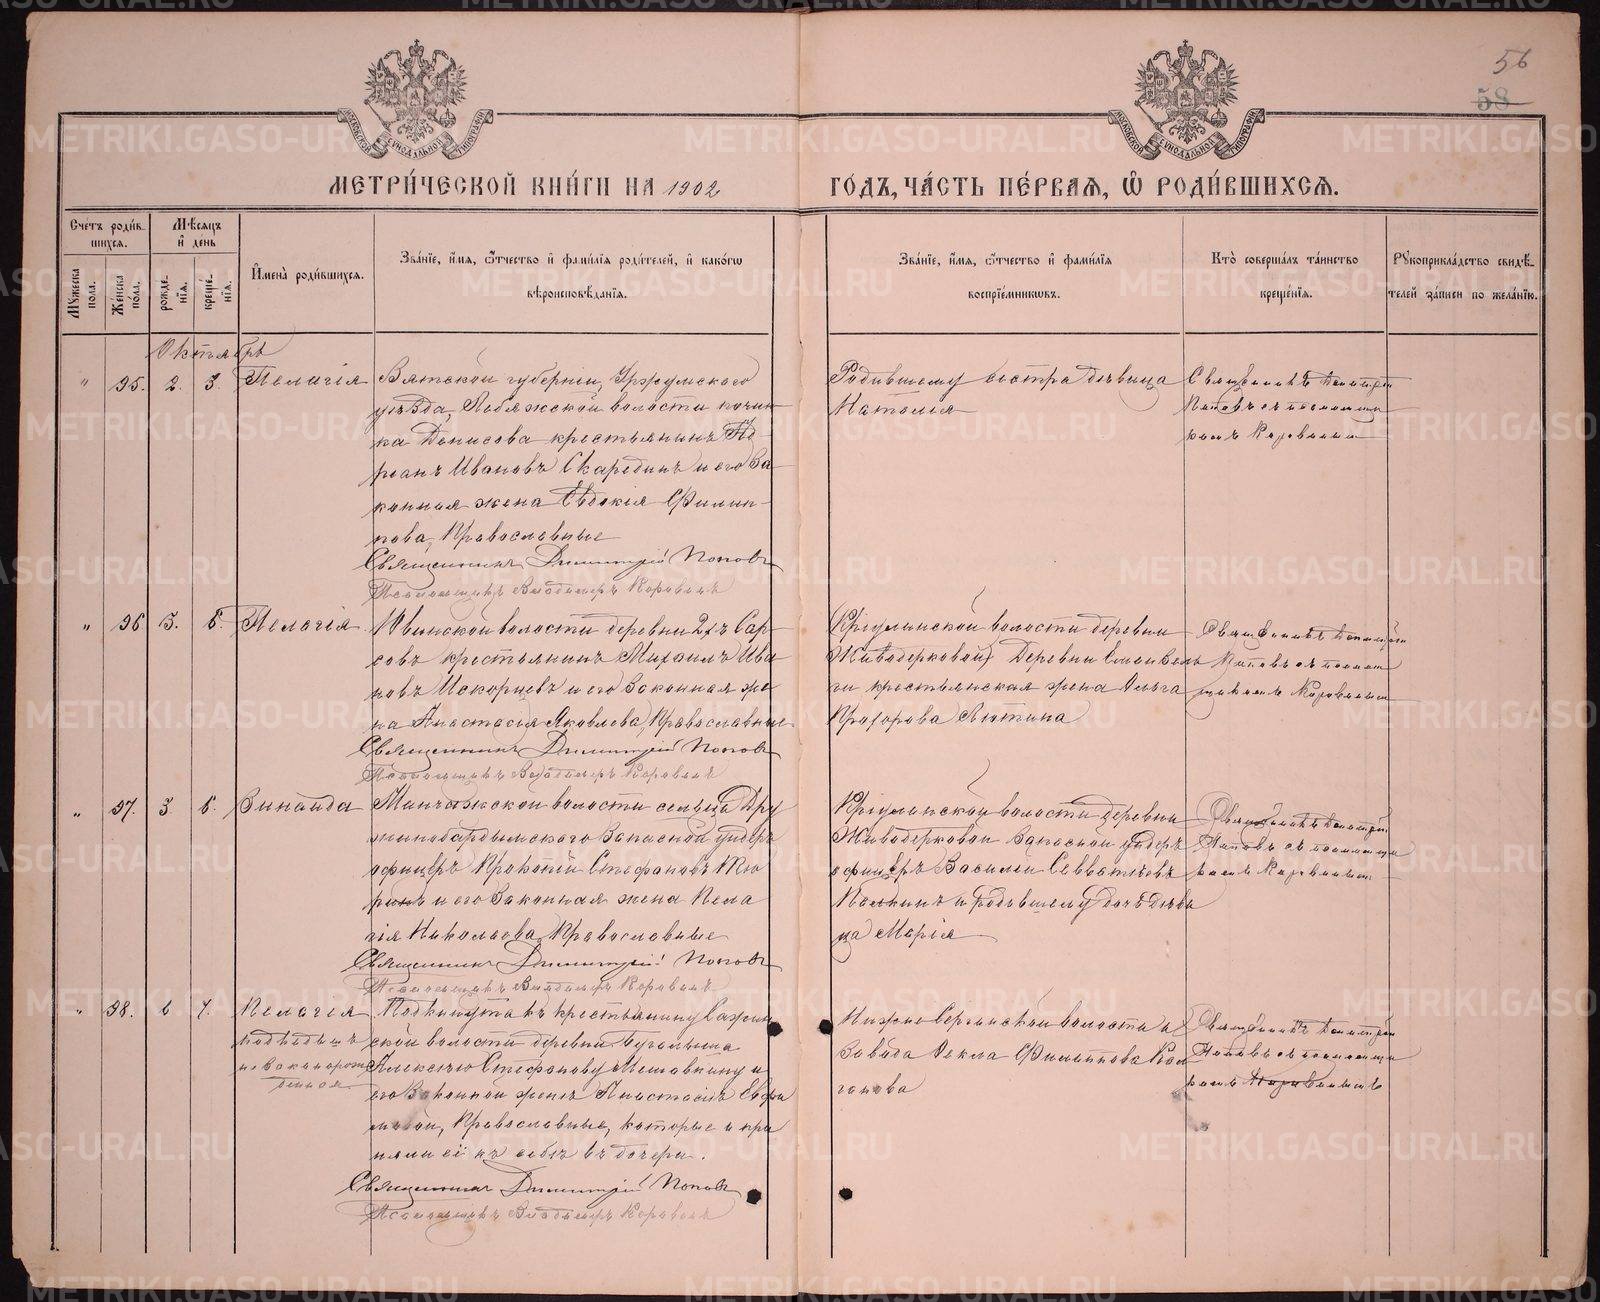 56
58
МЕТРИ́ЧЕСКОЙ КНИ́ГИ НА 1902 ГОДЪ, ЧА́СТЬ ПЕ́РВАЯ, Ѽ РОДИ́ВШИХСЯ.
Сче́тъ роди́вшихся.
Му́жеска пола.
Же́нска по́ла.
Мѣ́сяцъ и҆ де́нь
рожде́нїя.
креще́нїя.
И҆мена̀ роди́вшихся.
Зва́нїе, и҆́мя, ѻ҆́тчество и҆ фами́лїя роди́телей, и҆ како́гѡ вѣроисповѣ́данїя.
Зва́нїе, и҆́мя, ѻ҆́тчество и҆ фами́лїя воспрїе́мниковъ.
Кто̀ соверша́лъ та́инство креще́нїя.
Рꙋкоприкла́дство свидѣ́телей за́писи по жела́нїю.
Октябрь
" 95. 2. 3. Пелагія
Вятской губерніи, Уржумскаго
уѣзда, Лебяжской волости почин
ка Денисова крестьянинъ Ад
ріанъ Ивановъ Скарединъ и его За
конная жена Евдокія Филип
пова, Православные
Священникъ Димитрій Поповъ
Псаломщикъ Владимиръ Коровинъ
Родившему сестра девица
Наталія
Священникъ Димитрій
Поповъ съ псаломщи
комъ Коровинымъ
" 96. 3. 6. Пелагія
Ювинской волости деревни 2хъ Сар
совъ крестьянинъ Михаилъ Ива
новъ Искорцевъ и его Законная же
на Анастасія Яковлева, Православные
Священникъ Димитрій Поповъ
Псаломщикъ Владимиръ Коровинъ
(Кріулинской волости деревни
Живодерковой) Деревни
крестьянская жена Ольга
Прохорова Лютина
Священникъ Димитрій
Поповъ съ псалом
щикомъ Коровинымъ
" 97. 3. 6. Зинаида
Манчажской волости сельца Дру
жинобардымского Запасной ундеръ
офицеръ Прокопій Стефановъ Тю
ринъ и его Законная жена Пела
гія Николаева, Православные
Священникъ Димитрій Поповъ
Псаломщикъ Владимиръ Коровинъ
Кріулинской волости деревни
Живодерковой Запасной ундеръ
офицеръ Василій Севватѣевъ
и родившему дочь деви
ца Марія
Священникъ Димитрій
Поповъ съ псаломщи
комъ Коровинымъ
" 98. 6 7. Пелагія
подкидышъ
незаконорож
денная
Подкинута къ крестьянину Сажин
ской волости деревни Бугалыша
Алексѣю Стефанову Мешавкину и
его Законной женѣ Анастасіѣ Евфи
мовой, Православные, которые и при
няли её къ себѣ въ дочери.
Священникъ Димитрій Поповъ
Псаломщикъ Владимиръ Коровинъ
Нижне Сергинской волости и
Завода Фекла Филиппова Кол
ганова
Священникъ Димитрій
Поповъ съ псаломщи
комъ Коровинымъ